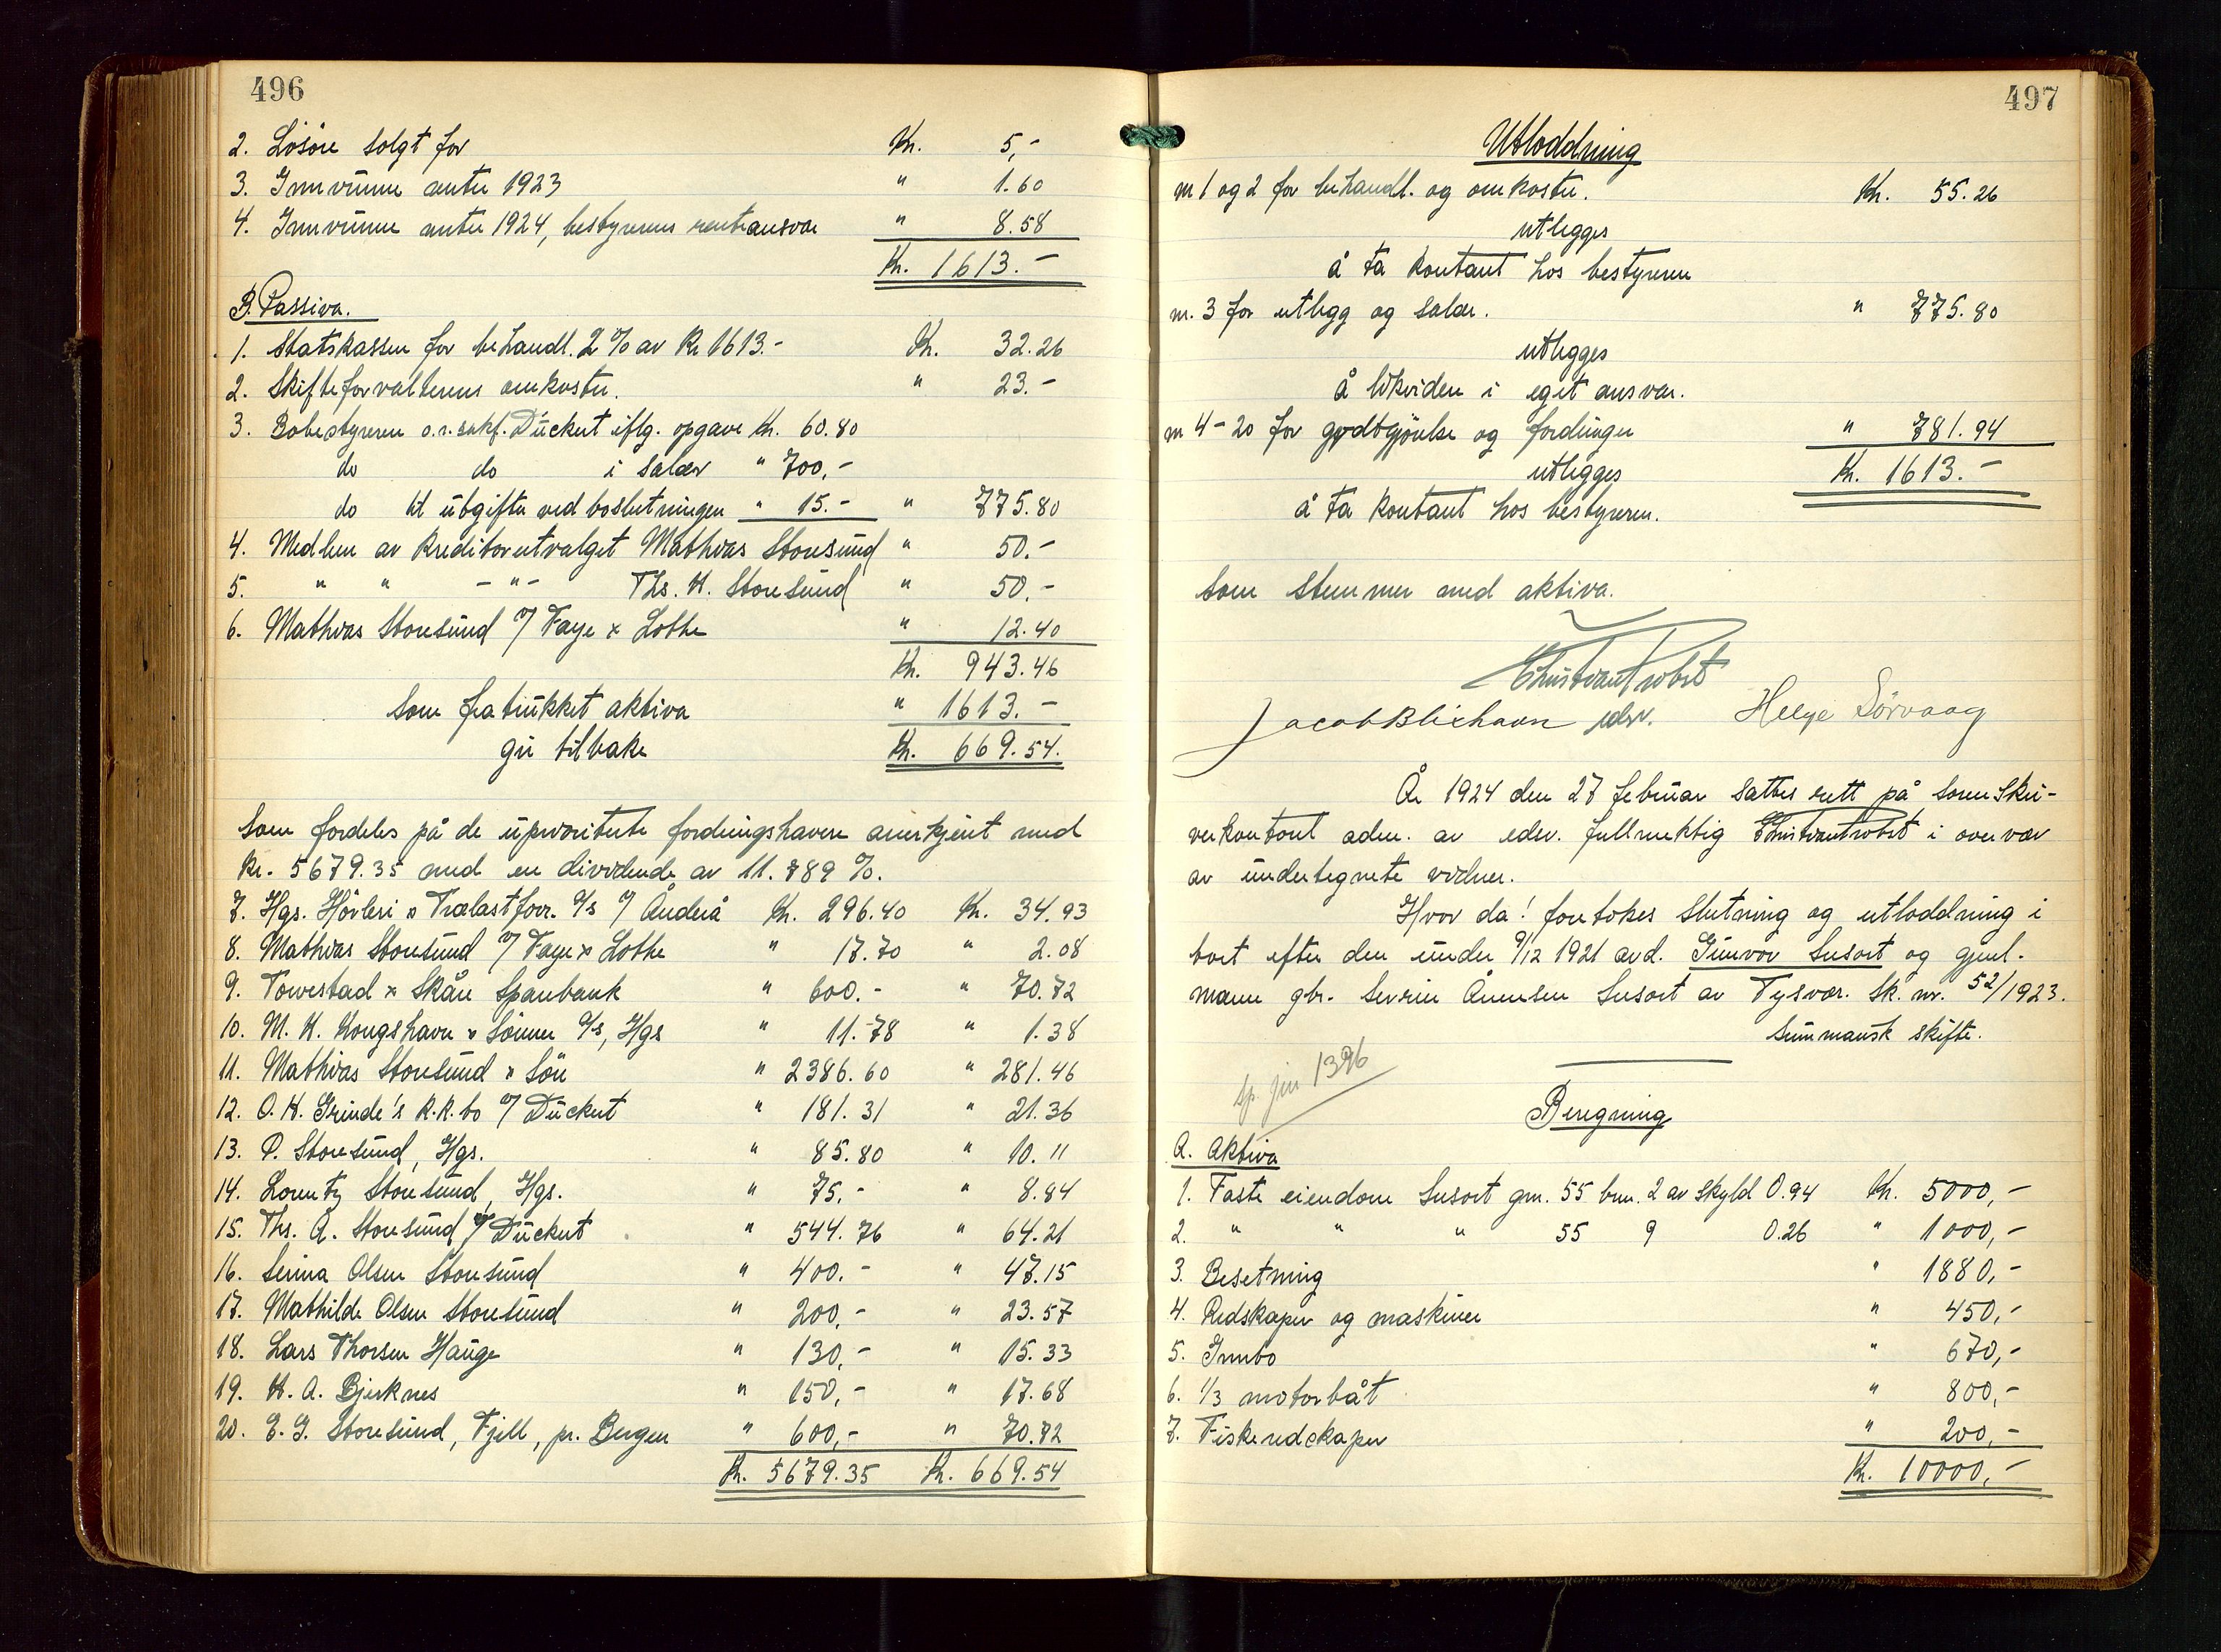 496
2. Lösöre solgt for Kr. 5,-
3. Innvunne renter 1923 " 1.60
4. Innvunne renter 1924, bestyrerens renteansvar " 8.58
Kr. 1613.-
B. Passiva.
1. Statskassen for behandl. 2 % av Kr 1613.- Kr. 32.26
2. Skifteforvalterens omkostn. " 23.-
3. Bobestyreren o.r.sakf. Dückert iflg. opgave Kr. 60.80
do do i salær " 700,-
do til utgifter ved boslutningen " 15.- " 775.80
4. Medlem av kreditorutvalget Mathias Storesund " 50.-
5. " " - " - Ths. K. Storesund " 50.-
6. Mathias Storesund v/ Faye & Lothe " 12.40
Kr. 943.46
Som fratrukket aktiva " 1613.-
gir tilbake Kr. 669.54.
Som fordeles på de uprioriterte fordringshavere anerkjent med
kr. 5679.35 med en dividende av 11.789 %.
7. Hgs. Hövleri & Trælastforr. A/s v/ Anderå Kr. 296.40 Kr. 34.93
8. Mathias Storesund v/ Faye & Lothe " 17.70 " 2.08
9. Torvestad & Skåre Sparebank " 600.- " 70.72
10. M. K. Kongshavn & Sönner A/s, Hgs " 11.78 " 1.38
11. Mathias Storesund & Sön " 2386.60 " 281.46
12. O. K. Grinde's k.k. bo v/ Dückert " 181.31 " 21.36
13. P. Storesund, Hgs. " 85.80 " 10.11
14. Lorentz Storesund, Hgs. " 75,- " 8.84
15. Ths. A. Storesund v/ Dückert " 544.76 " 64.21
16. Serina Olsen Storesund " 400.- " 47.15
17. Mathilde Olsen Storesund " 200,- " 23.57
18. Lars Thorsen Hauge " 130,- " 15.33
19. K. A. Bjerknes " 150,- " 17.68
20. E. G. Storesund, Fjell, pr. Bergen " 600,- " 70.72
Kr. 5679.35 Kr. 669.54
497
Utloddning
m 1 og 2 for behandl. og omkostn. Kr. 55.26
utlegges
å ta kontant hos bestyreren
m. 3 for utlegg og salær. " 775.80
utlegges
å likviden i eget ansvar.
m 4-20 for godtgjörelse og fordringer " 781.94
utlegges Kr. 1613.-
å ta kontant hos bestyreren.
Som stemmer med aktiva.
Christian Probst
Jacob Blixhavn edsv. Helge Sörvaag
År 1924 den 27 februar sattes rett på Sorenskri-
verkontoret adm. av edsv. fullmektig Christian Probst i overvær
av undertegnete vidner.
Hvor da! foretokes slutning og utloddning i
boet efter den under 9/12 1921 avd. Gunvor Susort og gjenl.
mann gbr. Severin Ånensen Susort av Tysvær. Sk. nr. 52/1923.
Summarisk skifte.
1396
Beregning
A. Aktiva
1. Faste eiendom Susort gnr. 55 bnr. 2 av skyld 0.94 Kr. 5000,-
2. " " " 55 9 0.26 " 1000,-
3. Besetning " 1880,-
4. Redskaper og maskiner " 450,-
5. Innbo " 670,-
6. 1/3 motorbåt " 800,-
7. Fiskeredskaper " 200,-
Kr. 10000,-